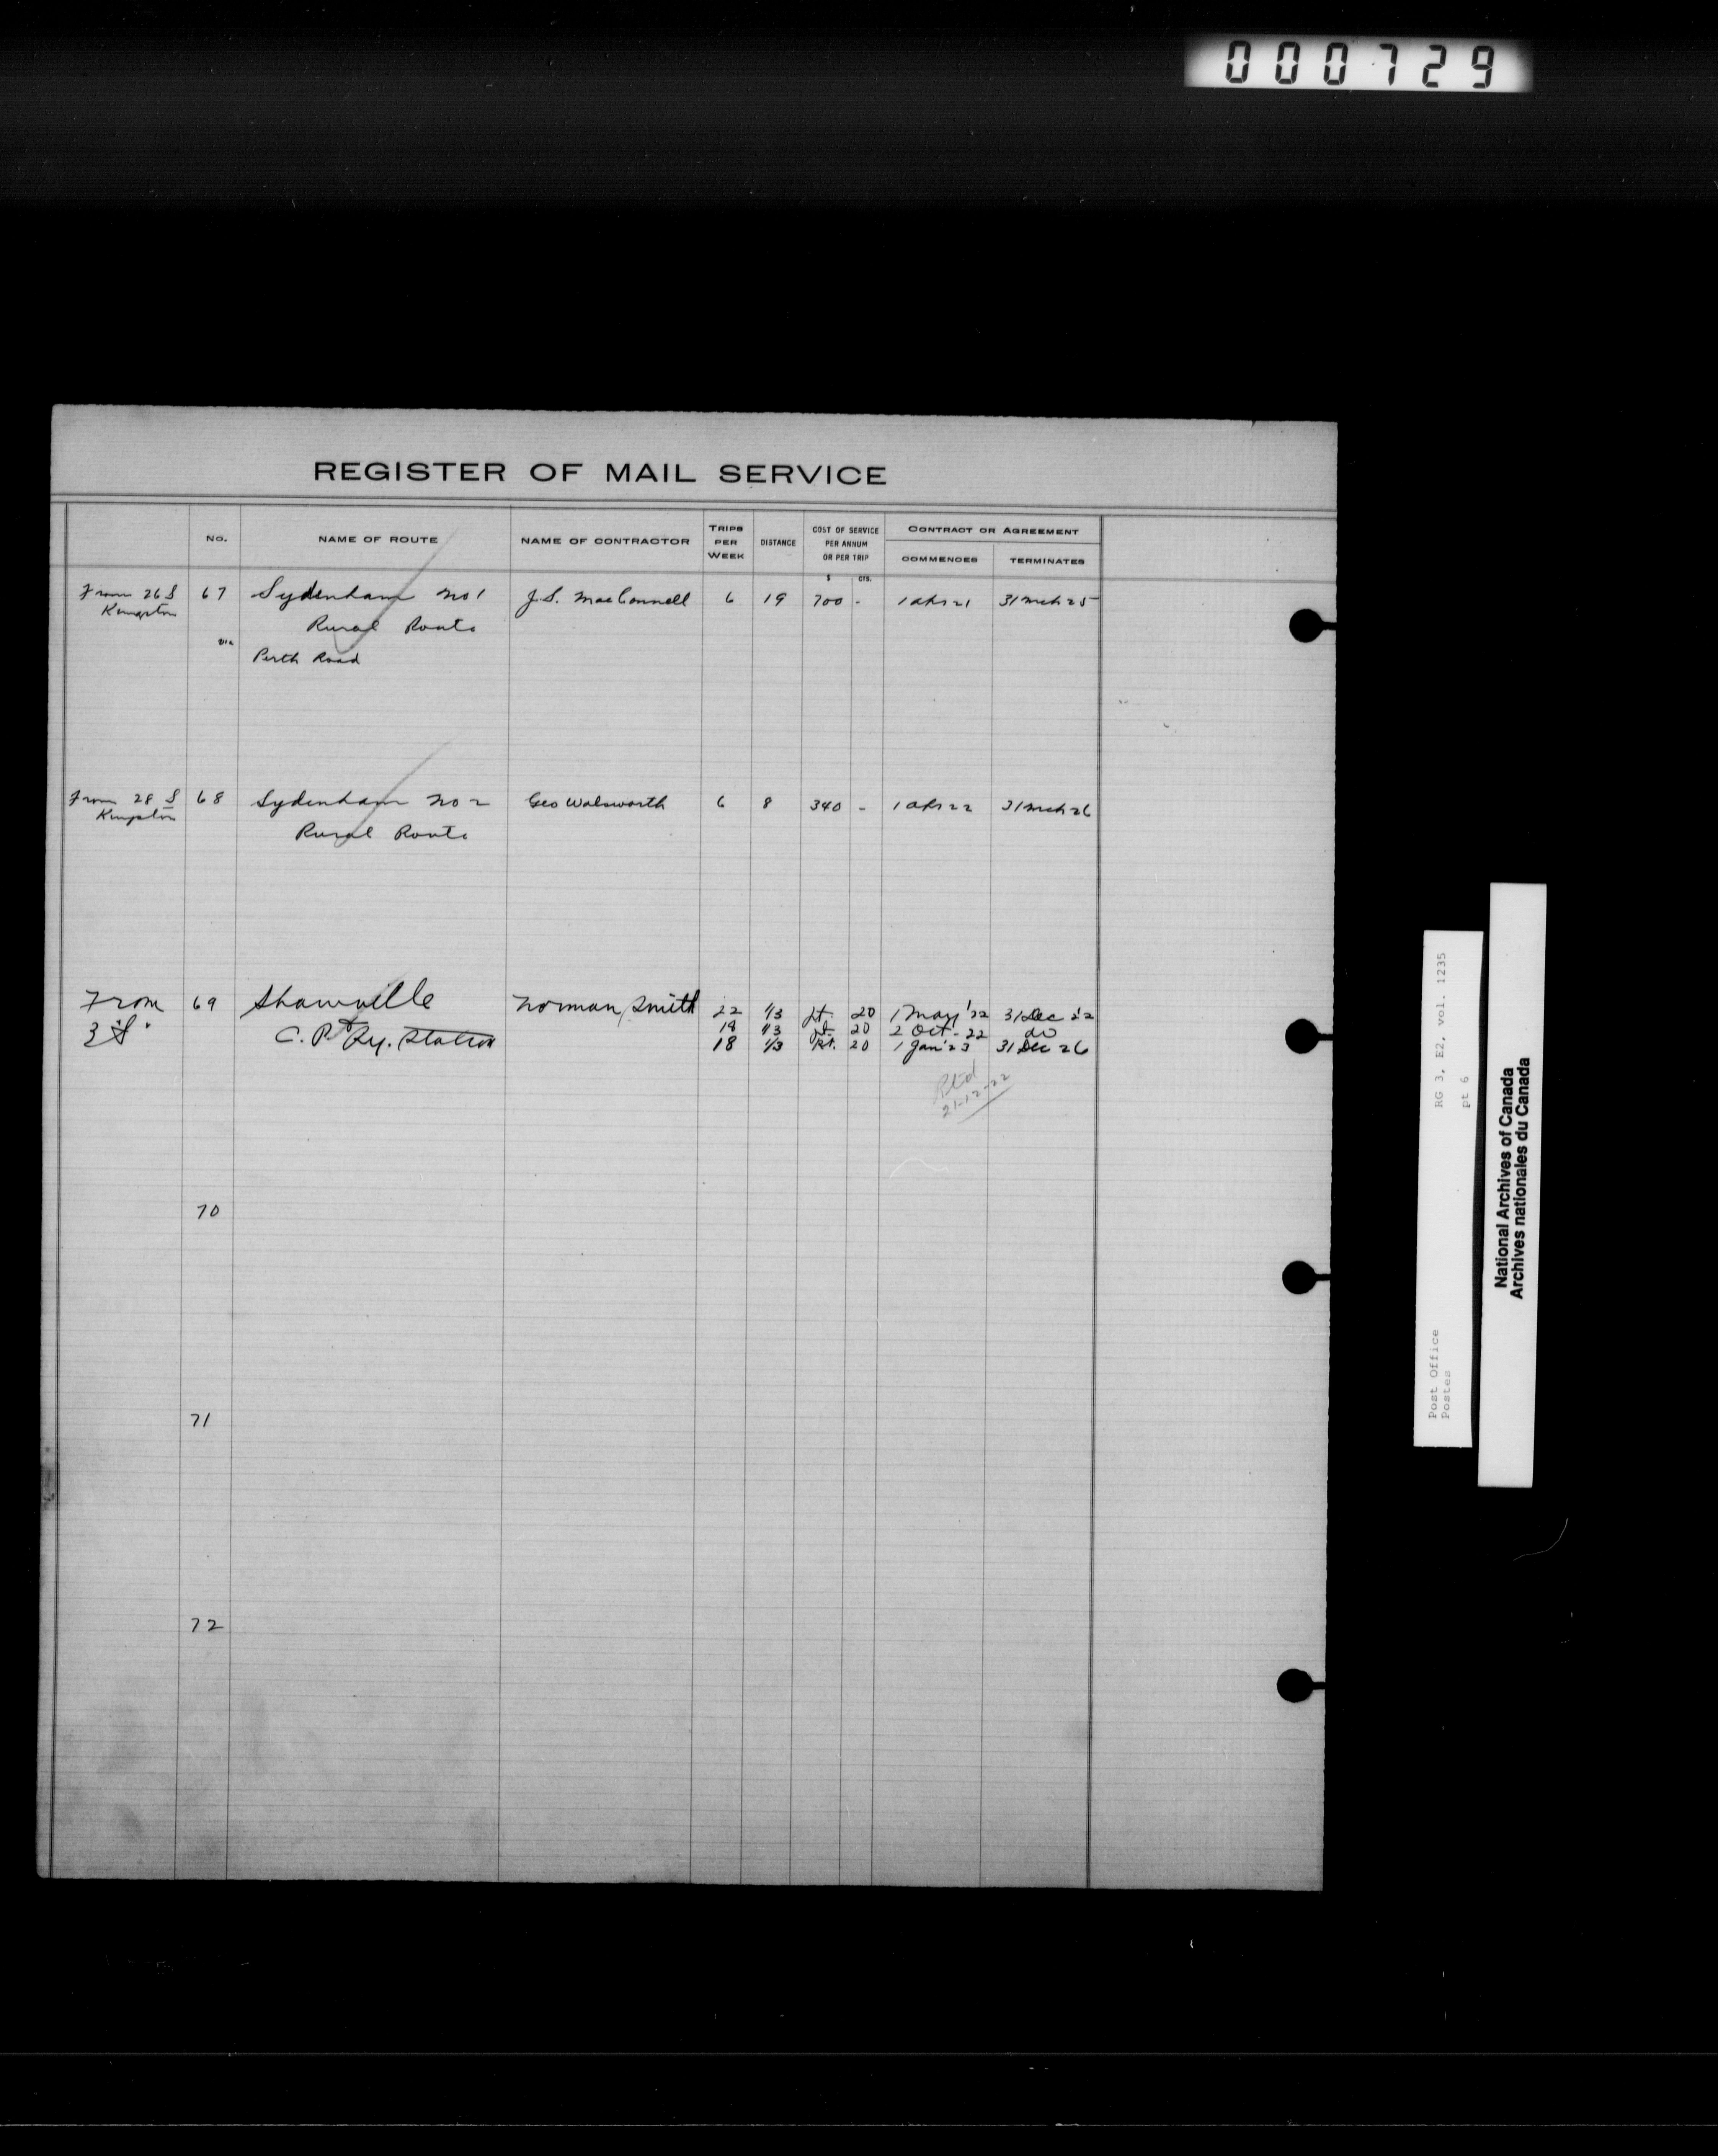 000729
REGISTER OF MAIL SERVICE
No.
NAME OF ROUTE
NAME OF CONTRACTOR
TRIPS PER WEEK
DISTANCE
COST OF SERVICE PER ANNUM OR PER TRIP
$ cts.
CONTRACT OR AGREEMENT
COMMENCES
TERMINATES
From 26 S 67 Sydenham No 1 J.S. MacConnell 6 19 700 - 1 apr 21 31 Mch 25
Kingston Rural Route
via Perth Road
From 28 S 68 Sydenham No 2 Geo Walsworth 6 8 340 - 1 apr 22 31 Mch 26
Kingston Rural Route
From 69 Shawville Norman Smith 22 1/3 20 1 May '22 31 Dec '22
3 S. C. P. Ry. Station 19 1/3 20 2 Oct - 22 do
18 1/3 rt. 20 1 Jan '23 31 Dec 26
21-12-22
70
71
72
Post Office RG 3, E2, vol. 1235
Postes pt 6
National Archives of Canada
Archives nationales du Canada